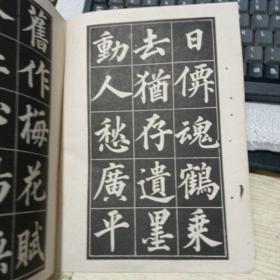 日僊魂鶴乘
去猶存遺墨
動人愁廣平
舊作梅花賦